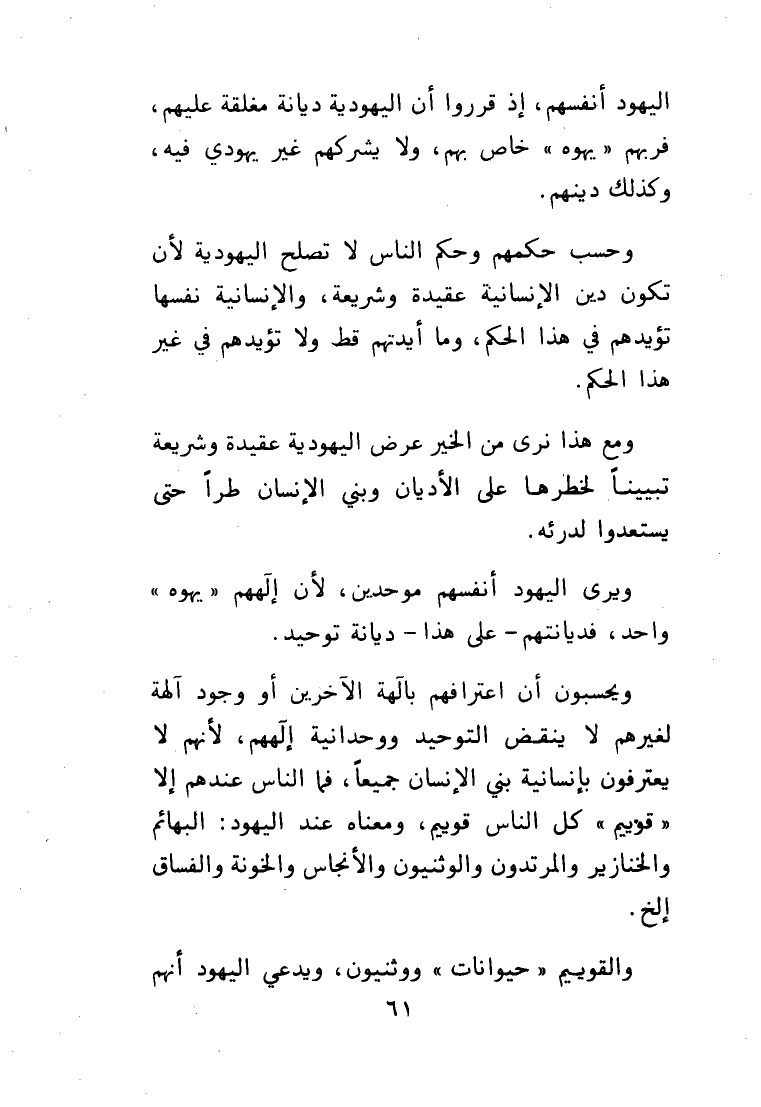 اليهود أنفسهم، إذ قرروا أن اليهودية ديانة مغلقة عليهم،
فربهم «يهوه» خاص بهم، ولا يشركهم غير يهودي فيه،
وكذلك دينهم.
وحسب حكمهم وحكم الناس لا تصلح اليهودية لأن
تكون دين الإنسانية عقيدة وشريعة، والإنسانية نفسها
تؤيدهم في هذا الحكم، وما أيدتهم قط ولا تؤيدهم في غير
هذا الحكم.
ومع هذا نرى من الخير عرض اليهودية عقيدة وشريعة
تبييناً لخطرها على الأديان وبني الإنسان طراً حتى
يستعدوا لدرئه.
ويرى اليهود أنفسهم موحدين، لأن إلٓههم «يهوه»
واحد، فديانتهم - على هذا - ديانة توحيد.
ويحسبون أن اعترافهم بآلهة الآخرين أو وجود آلهة
لغيرهم لا ينقض التوحيد ووحدانية إلٓههم، لأنهم لا
يعترفون بإنسانية بني الإنسان جميعاً، فما الناس عندهم إلا
«قوييم» كل الناس قوييم، ومعناه عند اليهود: البهائم
والخنازير والمرتدون والوثنيون والأنجاس والخونة والفساق
إلخ.
والقوييم «حيوانات» ووثنيون، ويدعي اليهود أنهم
٦١